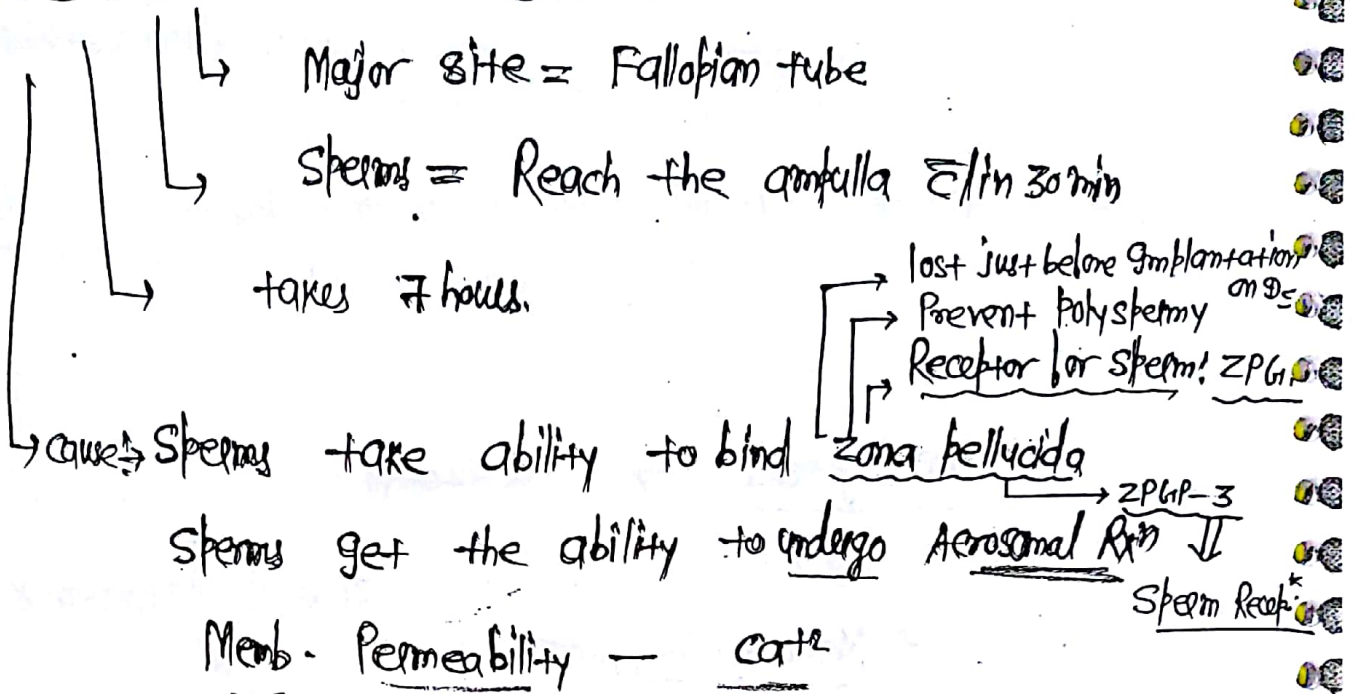 Major site = Fallopian tube
Sperms = Reach the ampulla c̅/in 30 min
takes 7 hours.
lost just before Implantation
on D5
Prevent Polyspermy
Receptor for sperm: ZPG
cause: Sperms take ability to bind zona pellucida
ZPGP-3
Sperms get the ability to undergo Acrosomal Rxn
Sperm Recep*
Memb. Permeability - Ca+2